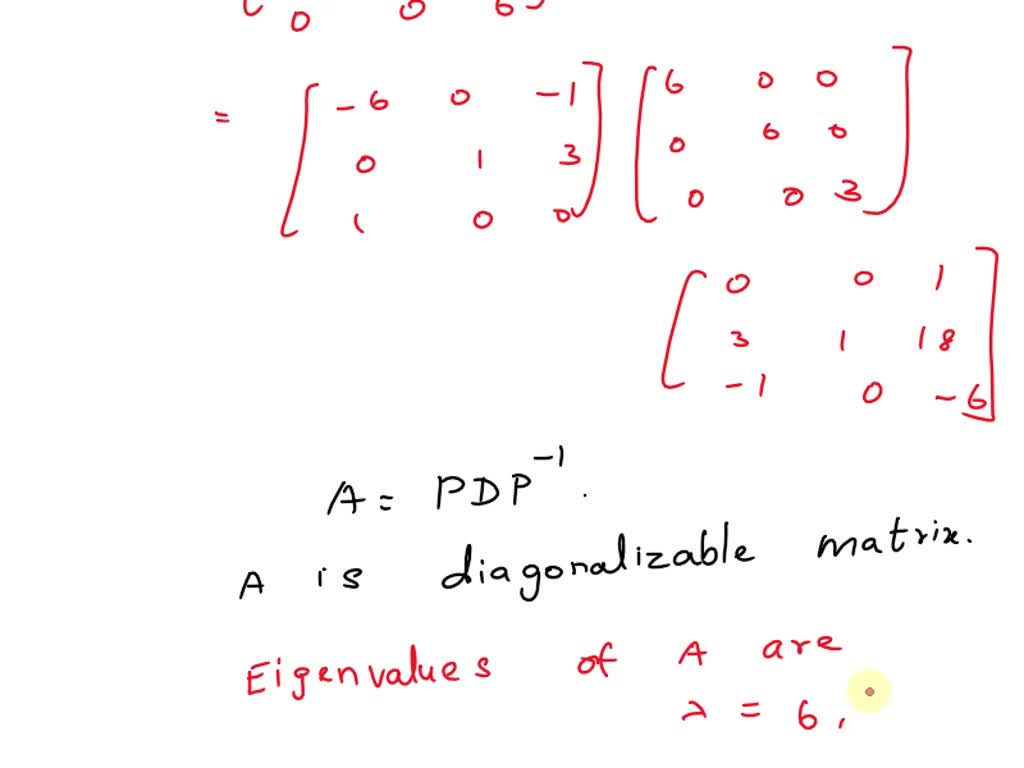 0 0 6
= [ -6 0 -1 ] [ 6 0 0 ]
0 1 3 0 6 0
1 0 0 0 0 3
[ 0 0 1 ]
3 1 18
-1 0 -6
A = PDP⁻¹.
A is diagonalizable matrix.
Eigenvalues of A are
λ = 6,